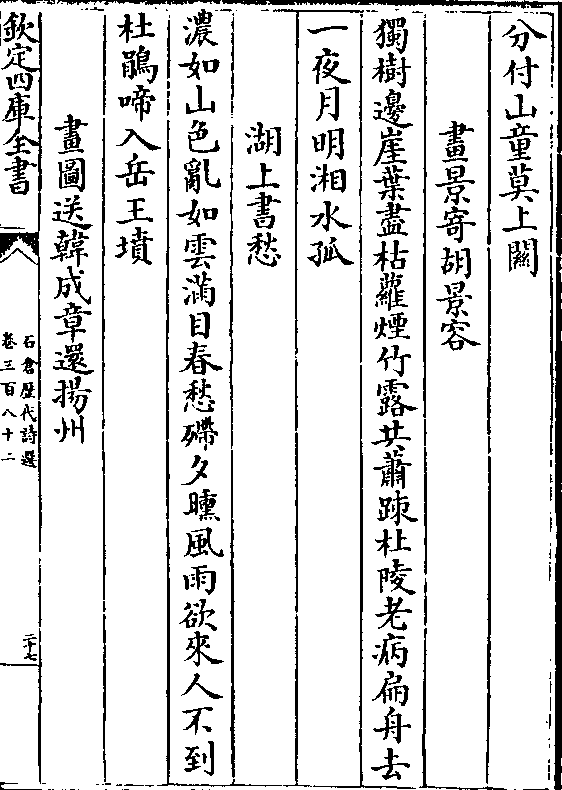 分付山童莫上闗
畫景寄胡景容
獨樹邊崖葉盡枯蘿煙竹露共蕭踈杜陵老病扁舟去
一夜月明湘水孤
湖上書愁
濃如山色亂如雲滿目春愁殢夕曛風雨欲來人不到
杜鵑啼入岳王墳
畫圖送韓成章還揚州
欽定四庫全書
石倉歷代詩選
卷三百八十二
二十七